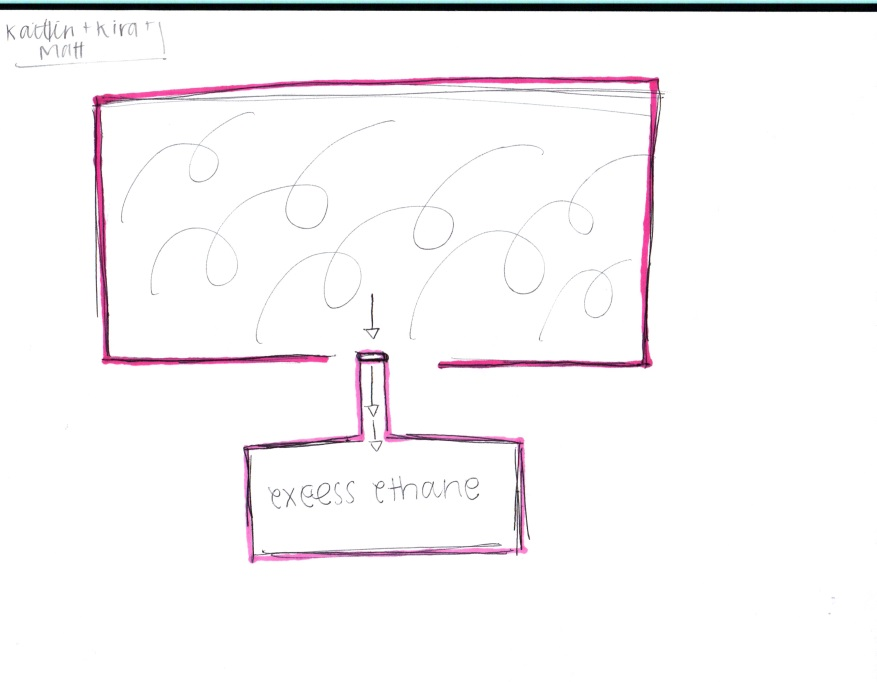 Kaitlin + Kira +
Matt
excess ethane